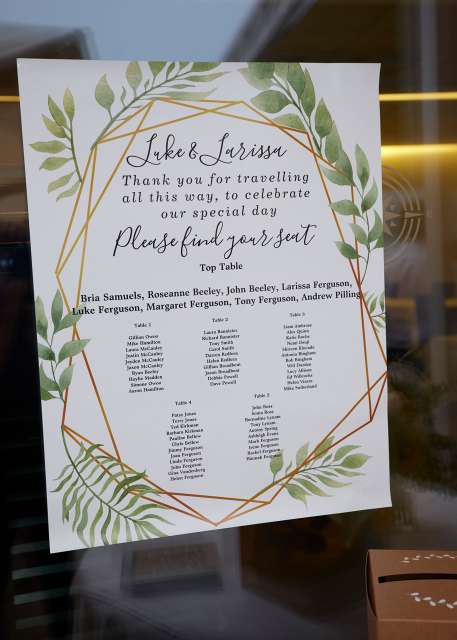 Luke & Larissa
Thank you for travelling
all this way, to celebrate
our special day
Please find your seat
Top Table
Bria Samuels, Roseanne Beeley, John Beeley, Larissa Ferguson,
Luke Ferguson, Margaret Ferguson, Tony Ferguson, Andrew Pilling
Table 1
Gillian Owen
Mike Hamilton
Laura McCauley
Justin McCauley
Jayden McCauley
Jason McCauley
Ryan Beeley
Haylie Madden
Simone Owen
Aaron Hamilton
Table 2
Laura Bannister
Richard Bannister
Tony Smith
Carol Smith
Darren Redfern
Helen Redfern
Gillian Broadbent
Jason Broadbent
Debbie Powell
Dave Powell
Table 3
Liam Ambrose
Alex Quinn
Katie Roche
Antonia Bingham
Rob Bingham
Will Dardan
Lucy Allison
Ed Willcocks
Helen Vizors
Mike Sutherland
Table 4
Patsy Jones
Terry Jones
Ted Kirkman
Barbara Kirkman
Pauline Bellew
Chris Bellew
Jimmy Ferguson
Jean Ferguson
Linda Ferguson
John Ferguson
Gina Vandenberg
Helen Ferguson
Table 5
John Rose
Sonia Rose
Tony Lynam
Antony Spring
Ashleigh Evans
Mark Ferguson
Irene Ferguson
Rachel Ferguson
Hannah Ferguson